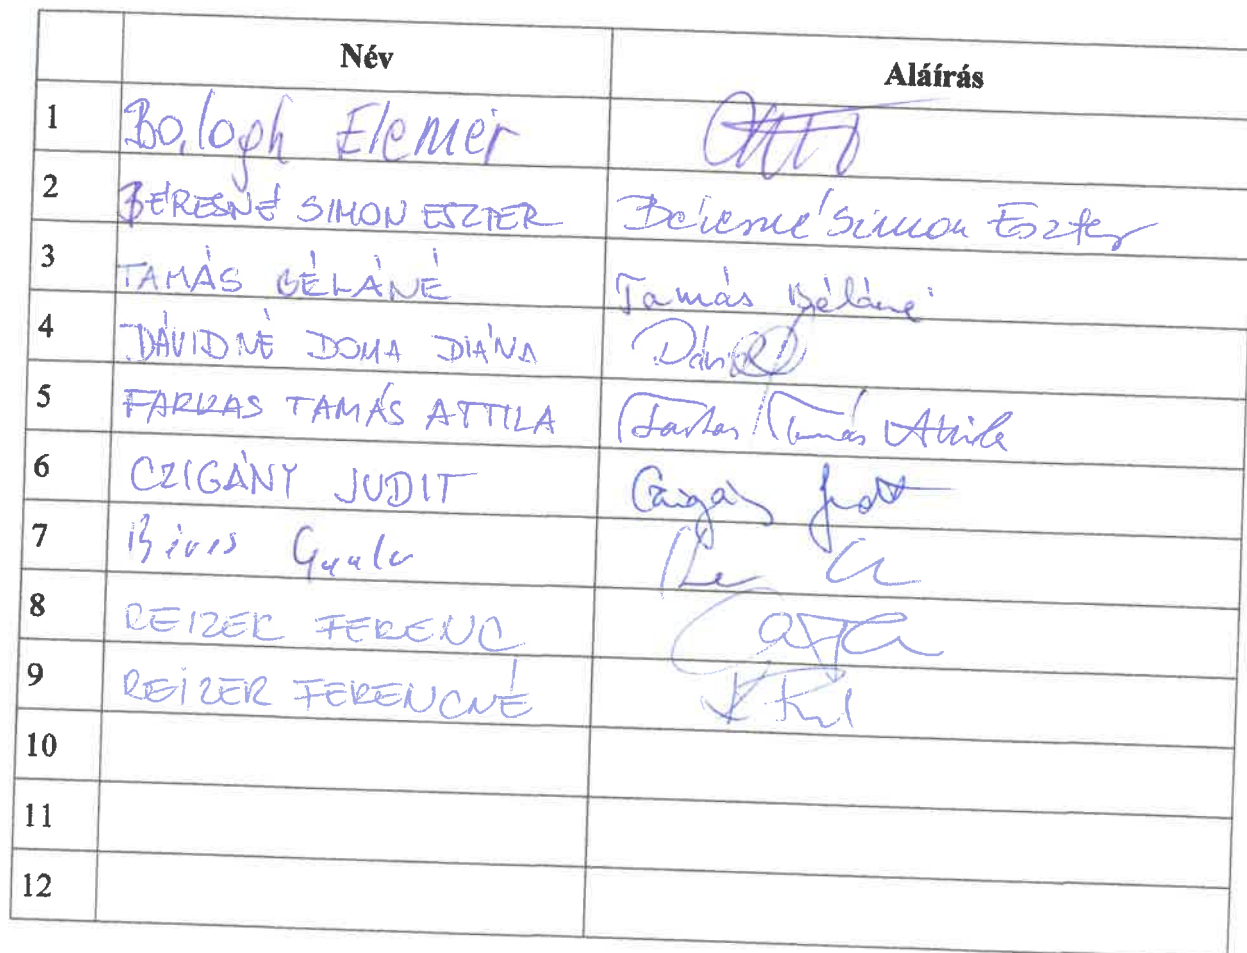 Név Aláírás
1 Balogh Elemér
2 BÉRESNÉ SIMON ESZTER Béresné Simon Eszter
3 TAMÁS BÉLÁNÉ Tamás Béláné
4 DÁVIDNÉ DOMA DIÁNA
5 FARKAS TAMÁS ATTILA Farkas Tamás Attila
6 CZIGÁNY JUDIT Czigány Judit
7 Gyula
8 REIZER FERENC
9 REIZER FERENCNÉ
10
11
12